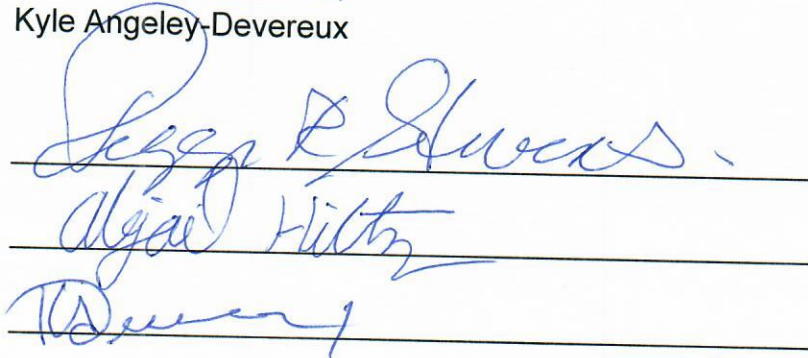 Kyle Angeley-Devereux
Peggy R Stevens.
Abigail Hiltz